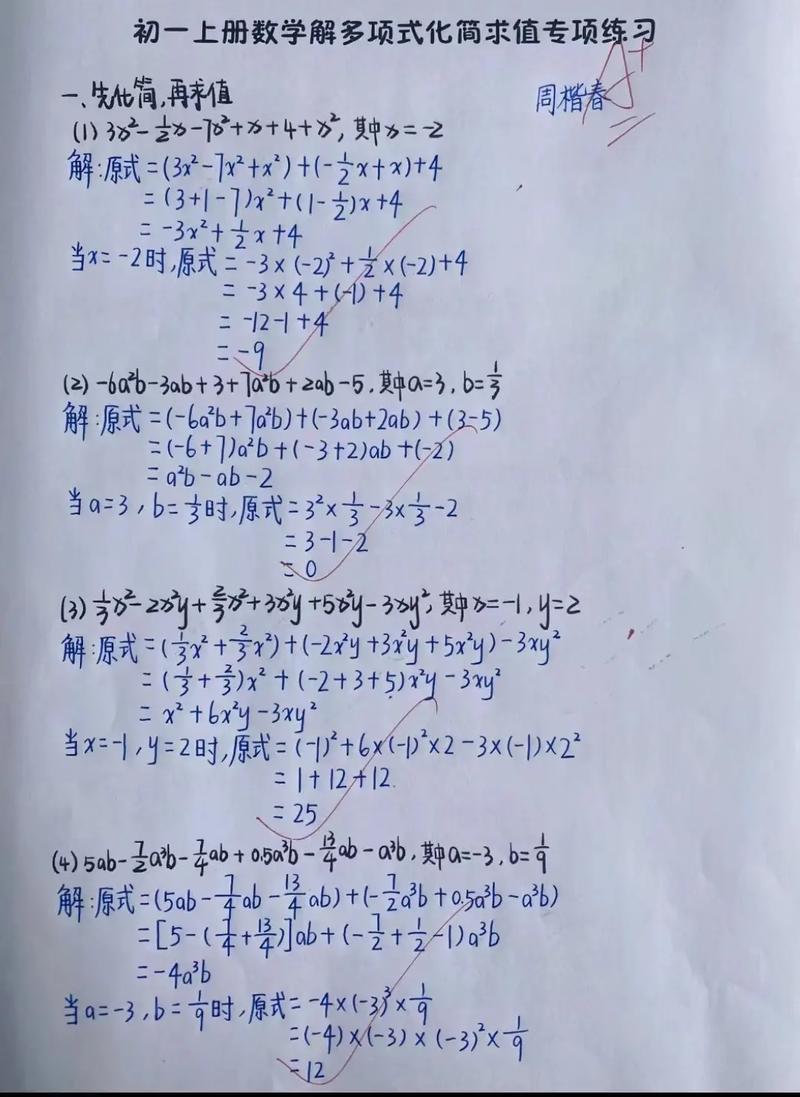 初一上册数学解多项式化简求值专项练习
A+
一、先化简,再求值
周楷春
(1) 3x²-½x-7x²+x+4+x²,其中x=-2
解:原式=(3x²-7x²+x²)+(-½x+x)+4
=(3+1-7)x²+(1-½)x+4
=-3x²+½x+4
当x=-2时,原式=-3×(-2)²+½×(-2)+4
=-3×4+(-1)+4
=-12-1+4
=-9
(2) -6a²b-3ab+3+7a²b+2ab-5,其中a=3,b=⅓
解:原式=(-6a²b+7a²b)+(-3ab+2ab)+(3-5)
=(-6+7)a²b+(-3+2)ab+(-2)
=a²b-ab-2
当a=3,b=⅓时,原式=3²×⅓-3×⅓-2
=3-1-2
=0
(3) ⅓x²-2x²y+⅔x²+3x²y+5x²y-3xy²,其中x=-1,y=2
解:原式=(⅓x²+⅔x²)+(-2x²y+3x²y+5x²y)-3xy²
=(⅓+⅔)x²+(-2+3+5)x²y-3xy²
=x²+6x²y-3xy²
当x=-1,y=2时,原式=(-1)²+6×(-1)²×2-3×(-1)×2²
=1+12+12
=25
(4) 5ab-7/2a³b-7/4ab+0.5a³b-13/4ab-a³b,其中a=-3,b=1/9
解:原式=(5ab-7/4ab-13/4ab)+(-7/2a³b+0.5a³b-a³b)
=[5-(7/4+13/4)]ab+(-7/2+1/2-1)a³b
=-4a³b
当a=-3,b=1/9时,原式=-4×(-3)³×1/9
=(-4)×(-3)×(-3)²×1/9
=12